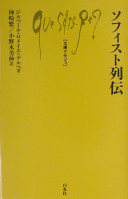 que sais-je?
文庫クセジュ
ソフィスト列伝
ジルベール・ロメイエ=デルベ 著
神崎繁/小野木芳伸 訳
白水社